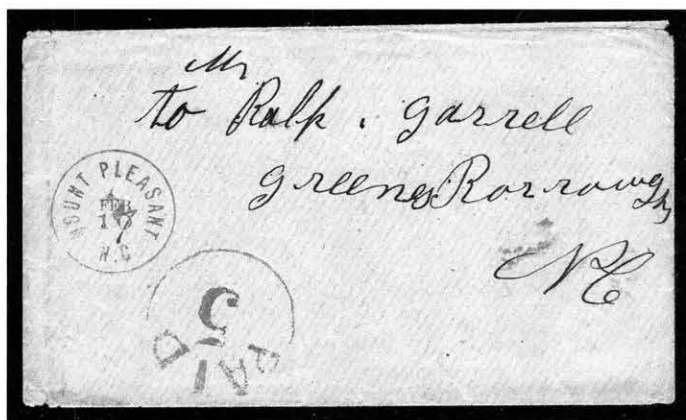 Mr
to Ralph . garrell
greens Rorrowghs
NC
MOUNT PLEASANT
FEB
N.C
PAID
5